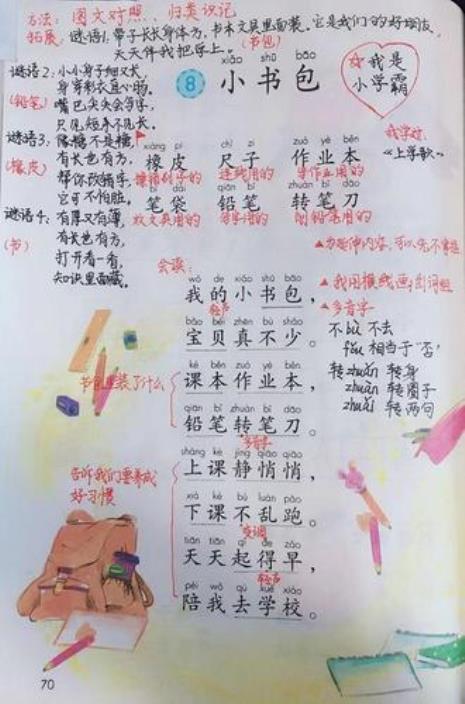 方法：图文对照、归类识记
拓展：谜语1：带子长长身体方，书本文具里面装。它是我们的好朋友，
天天伴我把学上。(书包)
xiǎo shū bāo
8 小书包
我是
小学霸
谜语2：小小身子细又长，
身穿彩衣直心肠。
(铅笔) 嘴巴尖尖会写字，
只见短来不见长。
谜语3：像糖不是糖，
(橡皮) 有长也有方，
帮你改错字，
它可不怕脏。
谜语4：有厚又有薄，
(书) 有长也有方，
打开看一看，
知识里面藏。
xiàng pí chǐ zi zuò yè běn
橡皮 尺子 作业本
连线用的 写作业用的
bǐ dài qiān bǐ zhuàn bǐ dāo
笔袋 铅笔 转笔刀
放文具用的 写字用的 削铅笔用的
《上学歌》
会读：
wǒ de xiǎo shū bāo
我的小书包，
轻声
bǎo bèi zhēn bù shǎo
宝贝真不少。
kè běn zuò yè běn
课本作业本，
书包里装了什么
qiān bǐ zhuàn bǐ dāo
铅笔转笔刀。
多音字
shàng kè jìng qiāo qiāo
上课静悄悄，
告诉我们要养成
好习惯
xià kè bú luàn pǎo
下课不乱跑。
变调
tiān tiān qǐ de zǎo
天天起得早，
轻声
péi wǒ qù xué xiào
陪我去学校。
我用横线画出词组
多音字
不 bù 不去
fǒu 相当于“否”
转 zhuǎn 转身
zhuàn 转圈子
zhuǎi 转两句
70